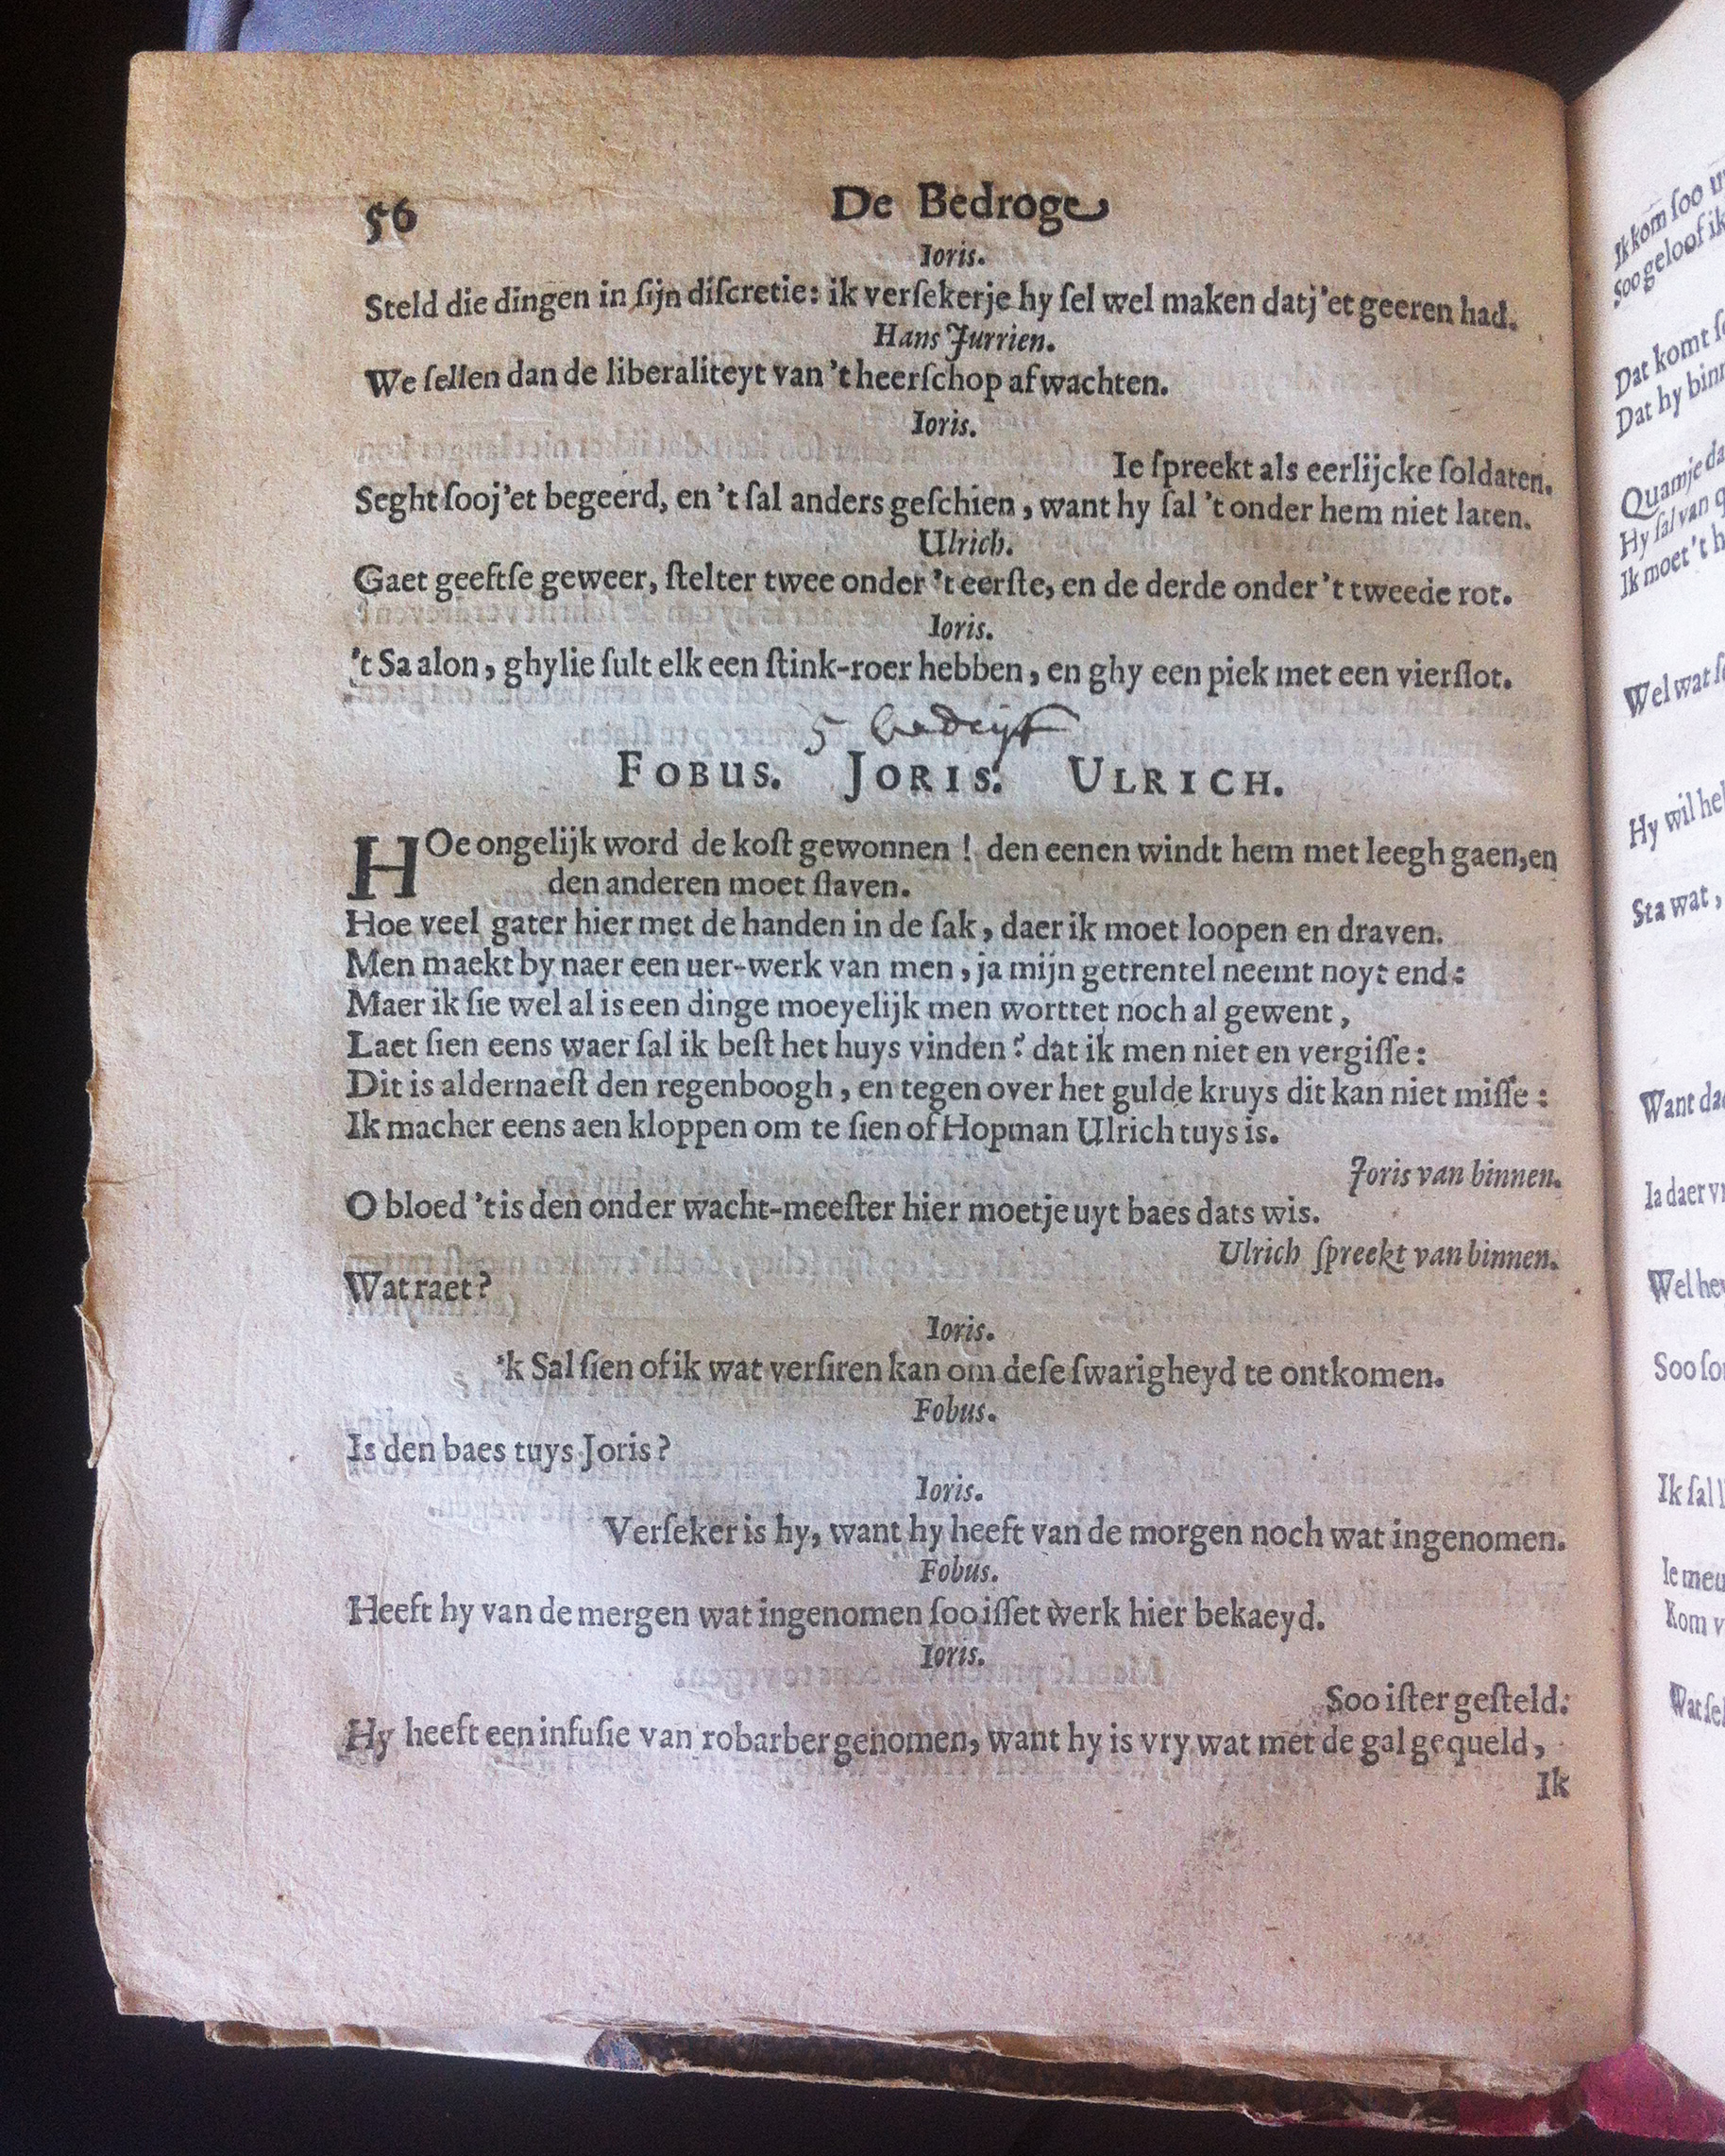 56
De Bedroge
Ioris.
Steld die dingen in ſijn diſcretie: ik verſekerje hy ſel wel maken datj'et geeren had.
Hans Jurrien.
We ſellen dan de liberaliteyt van 't heerſchop afwachten.
Ioris.
Ie ſpreekt als eerlijcke ſoldaten.
Seght ſooj'et begeerd, en 't ſal anders geſchien, want hy ſal 't onder hem niet laten.
Ulrich.
Gaet geeftſe geweer, ſtelter twee onder 't eerſte, en de derde onder 't tweede rot.
Ioris.
't Sa alon, ghylie ſult elk een ſtink-roer hebben, en ghy een piek met een vierſlot.
5 bedrijf
FOBUS. JORIS. ULRICH.
HOe ongelijk word de koſt gewonnen! den eenen windt hem met leegh gaen, en
den anderen moet ſlaven.
Hoe veel gater hier met de handen in de ſak, daer ik moet loopen en draven.
Men maekt by naer een uer-werk van men, ja mijn getrentel neemt noyt end:
Maer ik ſie wel al is een dinge moeyelijk men worttet noch al gewent,
Laet ſien eens waer ſal ik beſt het huys vinden? dat ik men niet en vergiſſe:
Dit is aldernaeſt den regenboogh, en tegen over het gulde kruys dit kan niet miſſe:
Ik macher eens aen kloppen om te ſien of Hopman Ulrich tuys is.
Joris van binnen.
O bloed 't is den onder wacht-meeſter hier moetje uyt baes dats wis.
Ulrich ſpreekt van binnen.
Wat raet?
Ioris.
'k Sal ſien of ik wat verſiren kan om deſe ſwarigheyd te ontkomen.
Fobus.
Is den baes tuys Joris?
Ioris.
Verſeker is hy, want hy heeft van de morgen noch wat ingenomen.
Fobus.
Heeft hy van de mergen wat ingenomen ſoo iſſet werk hier bekaeyd.
Ioris.
Soo iſter geſteld:
Hy heeft een infuſie van robarber genomen, want hy is vry wat met de gal gequeld,
Ik
Ik kom ſoo
Soo geloof ik
Dat komt
Dat hy
Quamje
Hy ſal van
Ik moet 't
Wel wat
Hy wil
Sta wat,
Want
Ia daer
Wel
Soo
Ik ſal
Ie
Kom
Wat